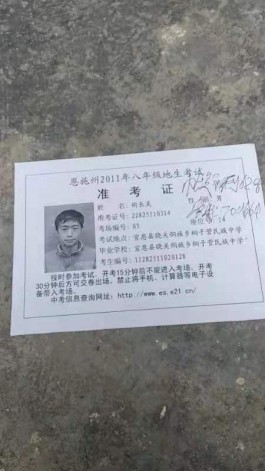 恩施州2011年八年级地生考试
准考证
姓名：
性别：男
准考证号：22825110314
考场编号：03
座位号：14
考试地点：宣恩县晓关侗族乡桐子营民族中学
毕业学校：宣恩县晓关侗族乡桐子营民族中学
考生编号：11282511020128
按时参加考试。开考15分钟后不能进入考场。开考
30分钟后方可交卷出场。禁止将手机、计算器等电子设
备带入考场。
中考信息查询网址：http://www.es.e21.cn/